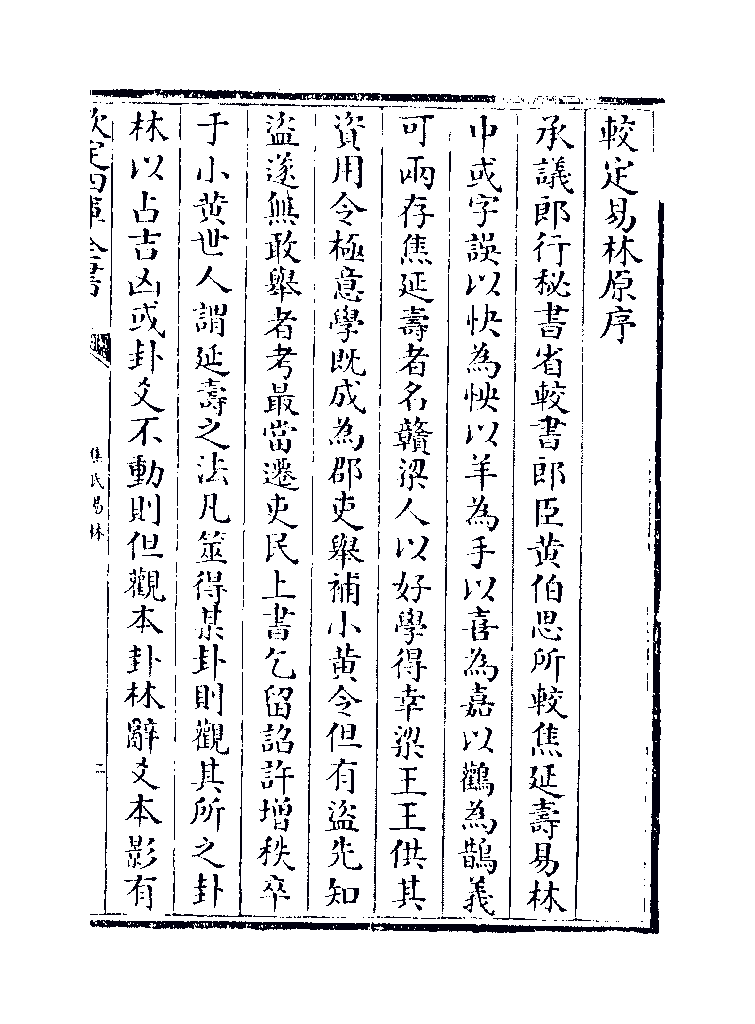 較定易林原序
承議郎行秘書省較書郎臣黄伯思所較焦延壽易林
中或字誤以快為怏以羊為手以喜為嘉以鸛為鵲義
可兩存焦延壽者名贛梁人以好學得幸梁王王供其
資用令極意學既成為郡吏舉補小黄令但有盜先知
盜遂無敢舉者考最當遷吏民上書乞留詔許增秩卒
于小黄世人謂延壽之法凡筮得某卦則觀其所之卦
林以占吉凶或卦爻不動則但觀本卦林辭爻本影有
欽定四庫全書
焦氏易林
二